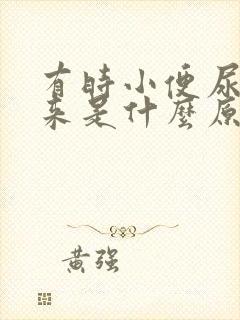 有時小便尿
来是什麼原
黄强